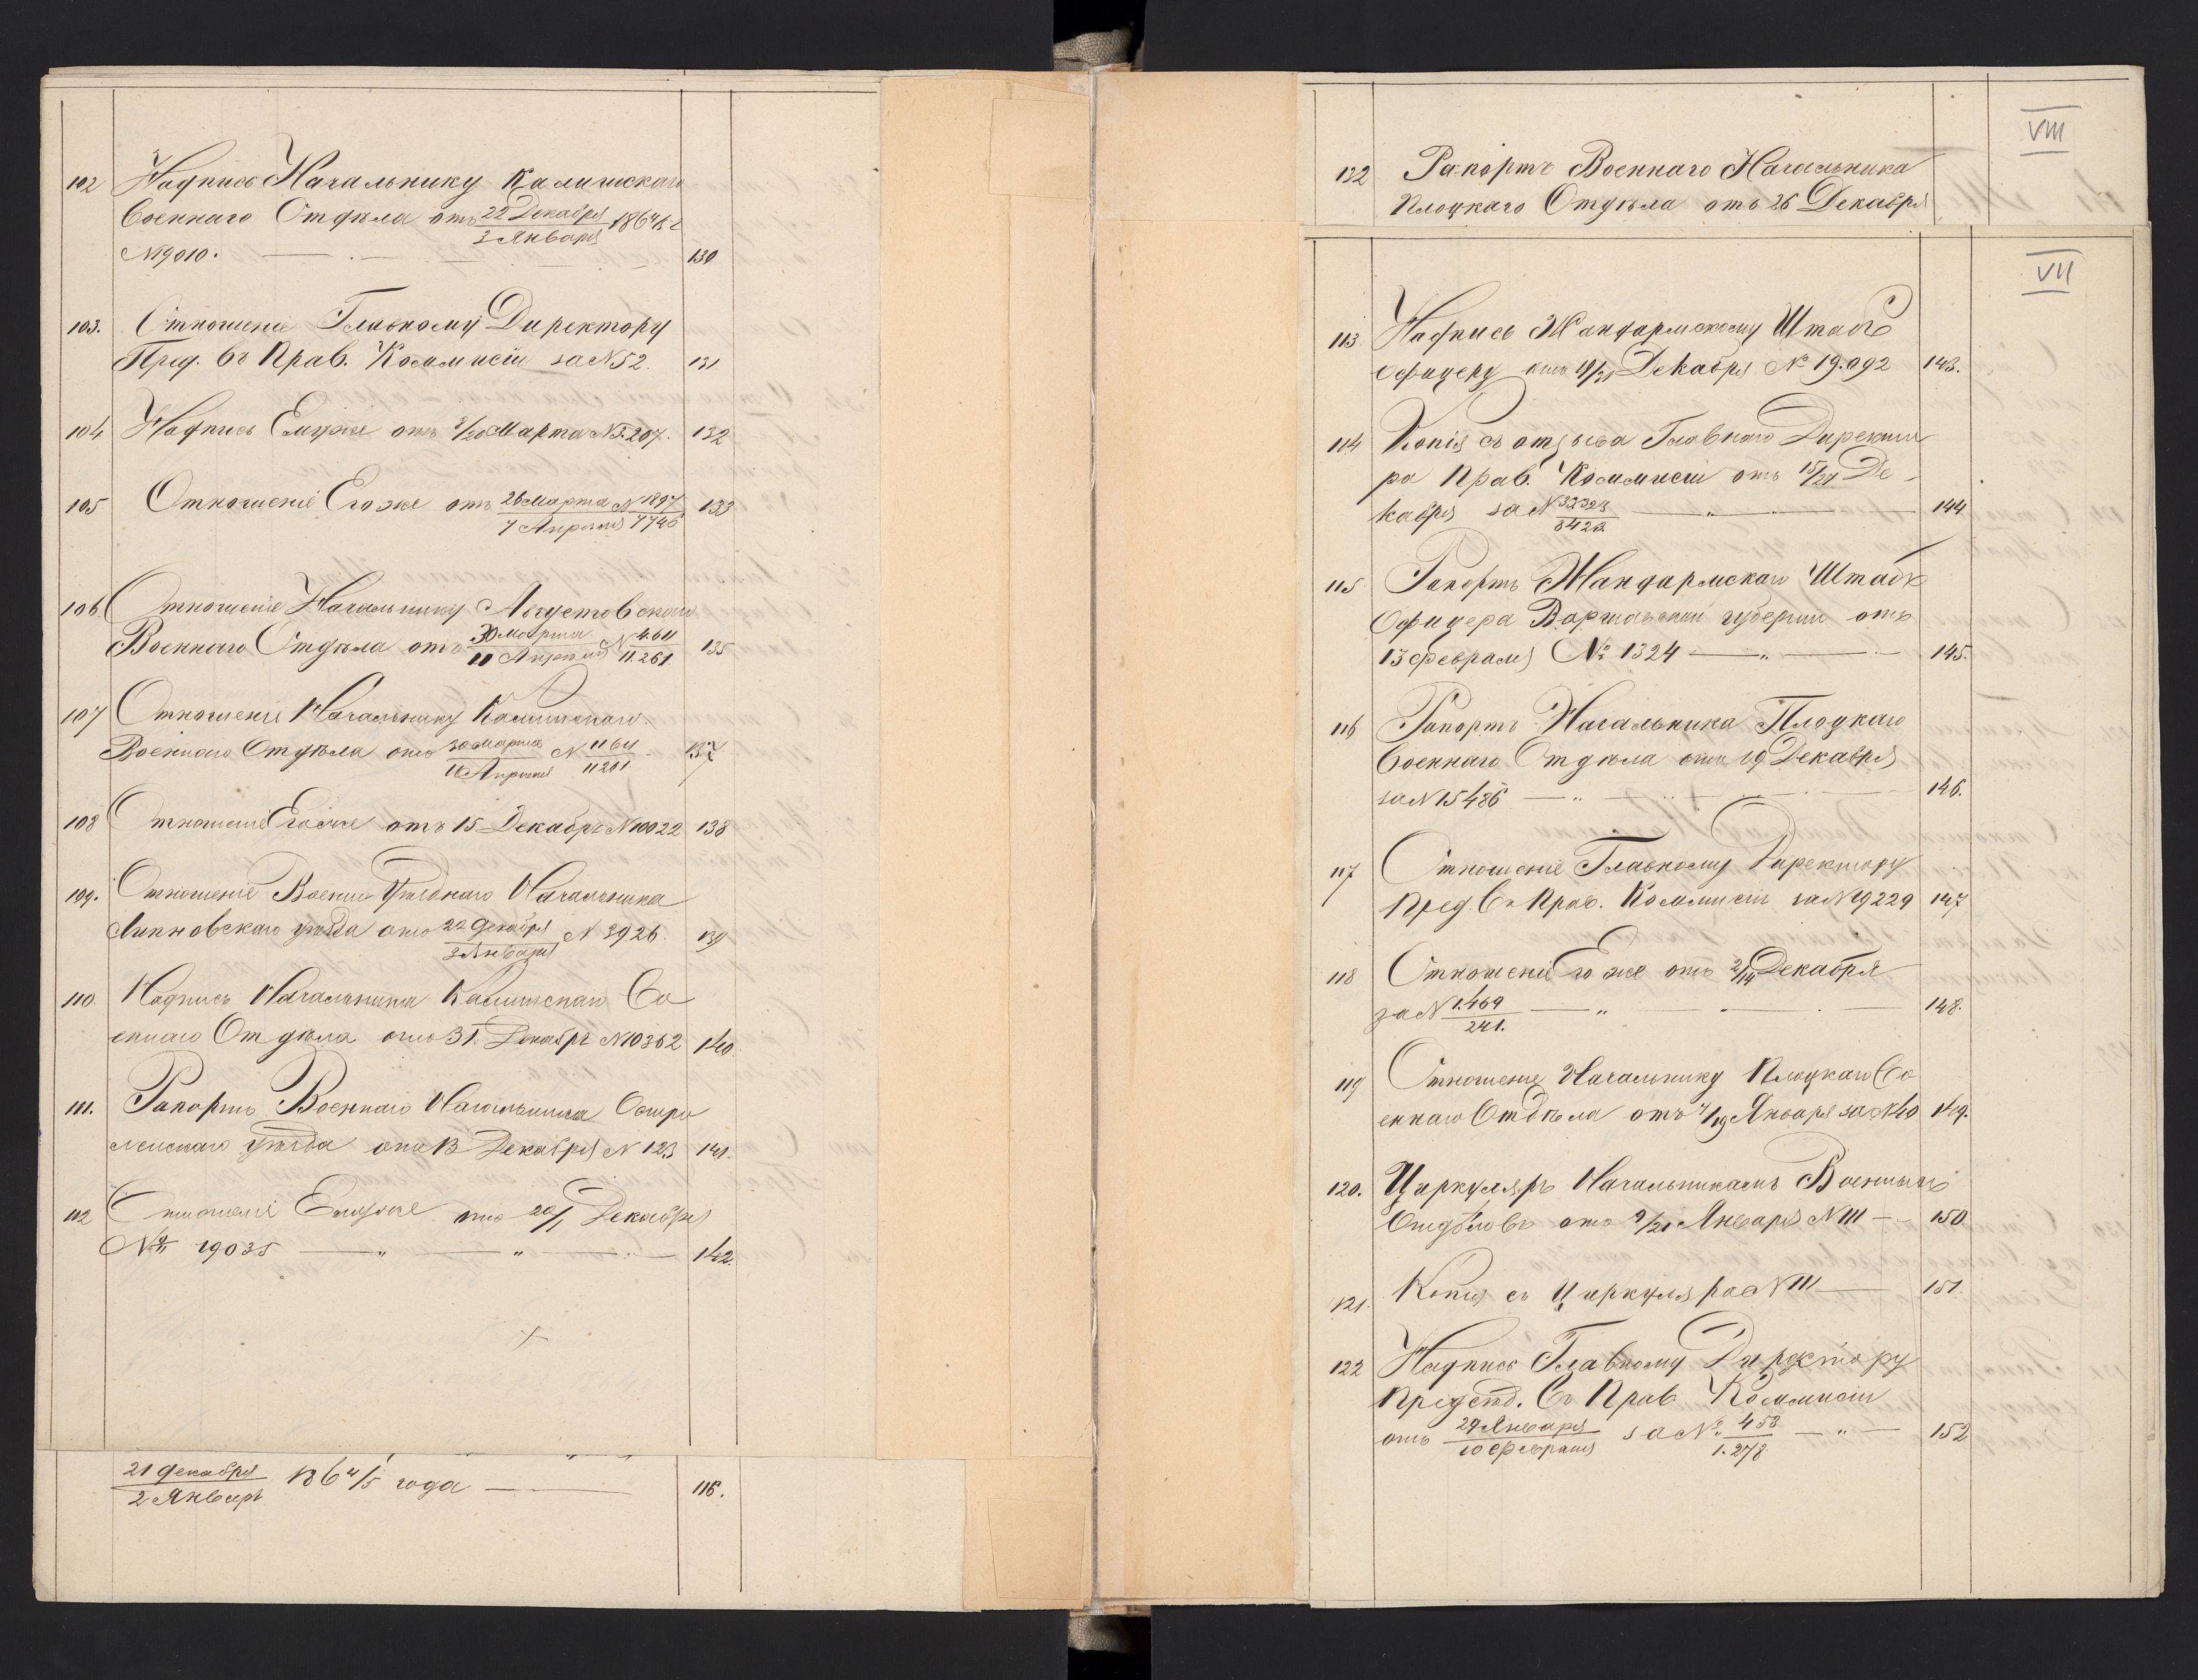 102 Надпись Начальнику Калишскаго
Военнаго Отдѣла отъ 22 Декабря / 3 Января 1864/5 г
№ 9010. 130
103. Отношеніе Главному Директору
Пред. въ Прав. Коммисіи за № 52. 131
104 Надпись Емуже отъ 8/20 Марта № 5.207. 132
105 Отношеніе Егоже отъ 26 Марта / 7 Апрѣля № 1897 / 7746 133
106 Отношеніе Начальнику Августовскаго
Военнаго Отдѣла отъ 30 Марта / 11 Апрѣля № 4.611 / 11.261 135
107 Отношеніе Начальнику Калишскаго
Военнаго Отдѣла отъ 30 Марта / 11 Апрѣля № 11611 / 11261 137
108 Отношеніе Егоже отъ 15 Декабря № 10022 138
109. Отношеніе Военно Уѣзднаго Начальника
Липновскаго уѣзда отъ 22 Декабря / 3 Января № 3926. 139
110. Надпись Начальника Калишскаго Во
еннаго Отдѣла отъ 31. Декабря № 10362 140
111. Рапортъ Военнаго Начальника Остро
ленскаго уѣзда отъ 13 Декабря № 123 141.
112 Отношеніе Емуже отъ 20/1 Декабря
№ 19035 „ „ 142.
21 Декабря / 2 Января 1864/5 года 116.
VIII
132 Рапортъ Военнаго Начальника
Плоцкаго Отдѣла отъ 26 Декабря
VII
113. Надпись Жандармскому Штабъ
Офицеру отъ 19/31 Декабря № 19.092 143.
114 Копія съ отзыва Главнаго Директо
ра Прав. Коммисіи отъ 15/27 Де-
кабря за № 33323 / 8422 „ 144
115 Рапортъ Жандармскаго Штабъ
Офицера Варшавской губерніи отъ
13 февраля № 1324 „ 145.
116 Рапортъ Начальника Плоцкаго
Военнаго Отдѣла отъ 19 Декабря
за № 15486 „ 146.
117 Отношеніе Главному Директору
Пред. въ Прав. Коммисіи за № 19229 147
118 Отношеніе Его же отъ 2/14 Декабря
за № 1.469 / 241. „ 148.
119 Отношеніе Начальнику Плоцкаго Во
еннаго Отдѣла отъ 7/19 Января за № 40 149.
120. Циркуляръ Начальникамъ Военныхъ
Отдѣловъ отъ 9/21 Января № 111 150
121. Копія съ Циркуляра № 111 151.
122 Надпись Главному Директору
Предсѣд. въ Прав. Коммисіи
отъ 29 Января / 10 Февраля за № 458 / 1.278 „ 152